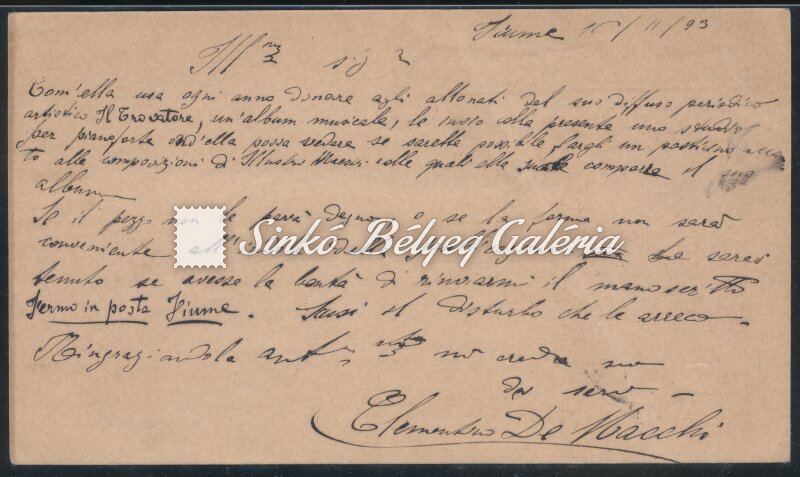 Fiume 15/11/93
Ill.mo sig.r
Com'ella usa ogni anno donare agli abbonati del suo diffuso periodico
artistico Il Trovatore, un'album musicale, le invio colla presente uno
per pianoforte ond'ella possa vedere se sarebbe possibile fargli un posticino
to alle composizioni di Illustri Maestri colle quali ella suole comporre il suo
album
Se il pezzo non le parrà degno o se la forma non sarà
conveniente Le sarei
tenuto se avesse la bontà di rinviarmi il manoscritto
Fermo in posta Fiume. Scusi il disturbo che le arreco.
Ringraziandola mi creda suo
serv
Clementino De Macchi
Sinkó Bélyeg Galéria